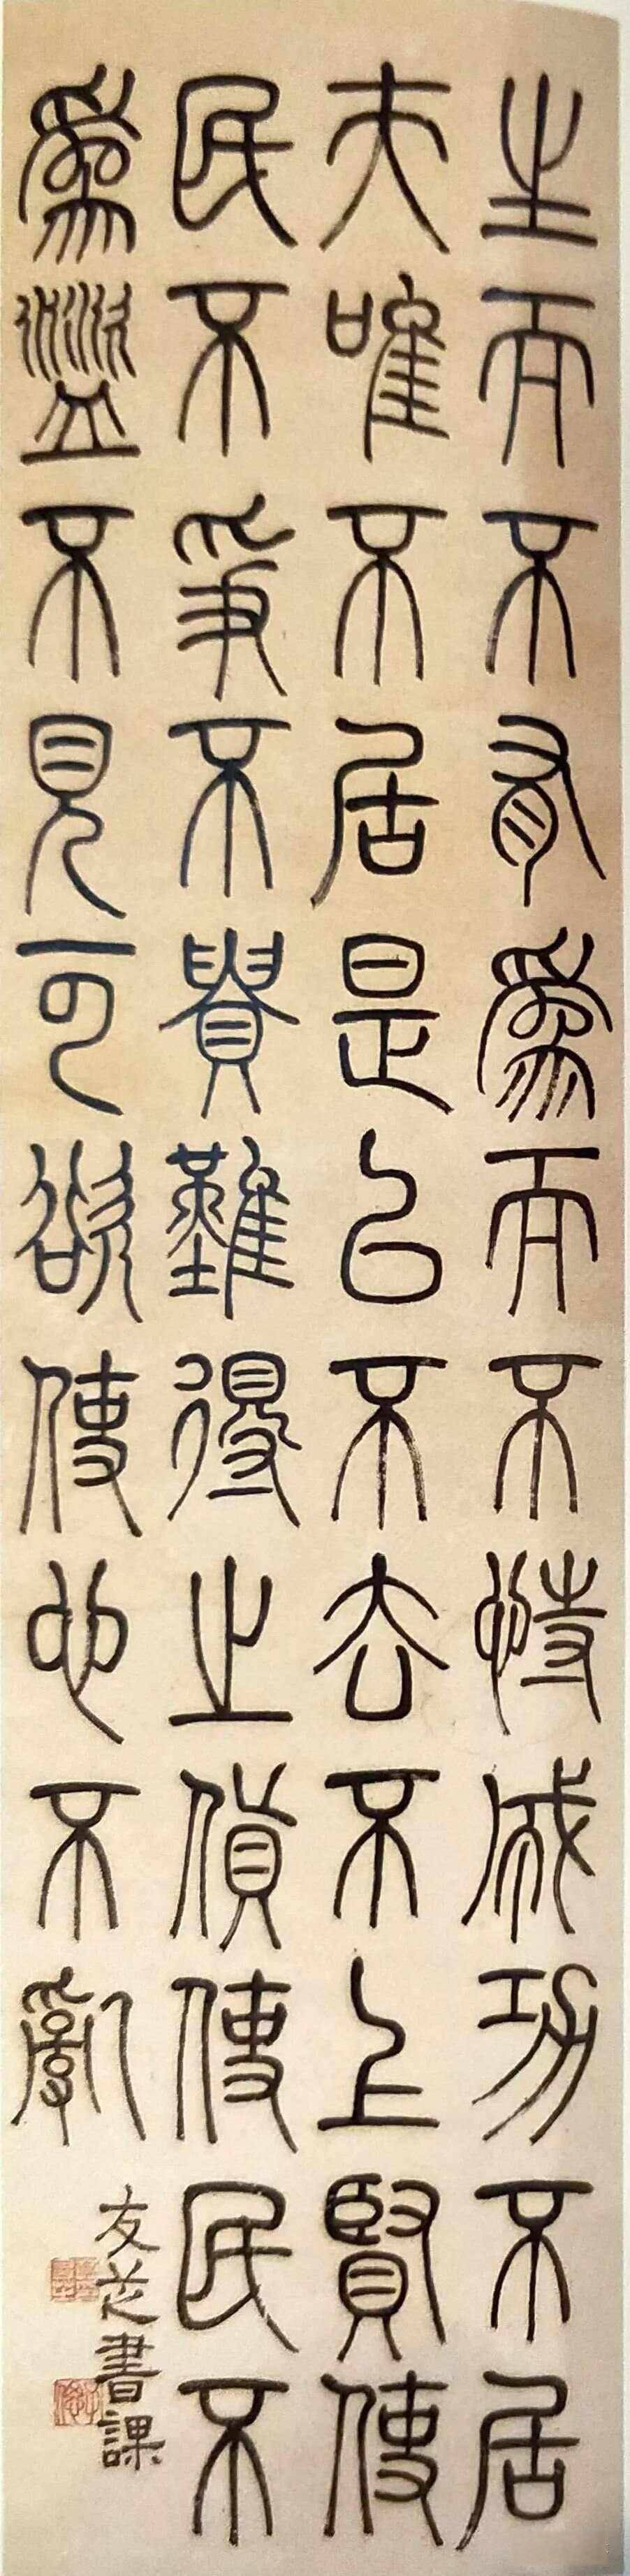 生而不有爲而不恃成功不居
夫唯不居是以不去不上賢使
民不爭不貴難得之貨使民不
爲盜不見可欲使心不亂
友芝書課